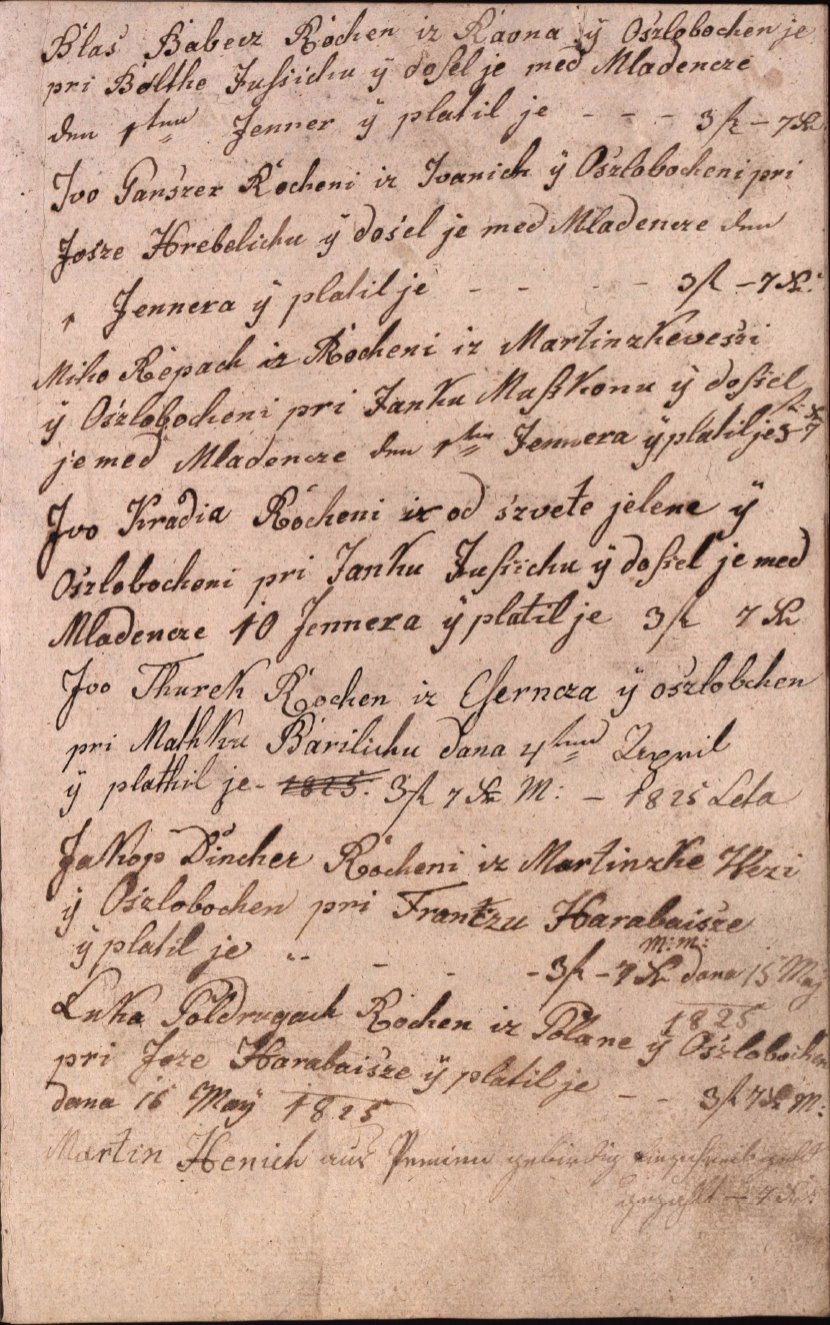 Blas Babecz Rochen iz Ravna ÿ Oszlobochen je
pri Bolthe Jussichu ÿ dosel je med Mladencze
den 1ten Jenner ÿ platil je - - - 3 fl - 7 Xr
Jvo Ganszer Rocheni iz Jvanich ÿ Oszlobocheni pri
Josze Hrebelichu ÿ dosel je med Mladencze den
1 Jennera ÿ platil je - - - - 3 fl - 7 Xr:
Miko Repach iz Rocheni iz Martinzkeveszi
ÿ Oszlobocheni pri Janku Musskonu ÿ dossel
je med Mladencze den 1ten Jennera ÿ platil je 3 fl 7 Xr
Jvo Kradia Rocheni iz od szvete jelene ÿ
Oszlobocheni pri Janku Jussichu ÿ dossel je med
Mladencze 10 Jennera ÿ platil je 3 fl 7 Xr
Jvo Thurek Rochen iz Cserncza ÿ oszlobchen
pri Mathku Barilichu dana 4ten April
ÿ plathil je - 1825. 3 fl 7 Xr M: - 1825 Leta
Jakop Dincher Rocheni iz Martinzke Wezi
ÿ Oszlobochen pri Frantzu Harabaisze
ÿ platil je „ - - - - 3 fl - 7 Xr M: M: dana 15 Maj
1825
Luka Poldrugach Rochen iz Polane ÿ Oszlobochen
pri Joze Harabaisze ÿ platil je - - 3 fl 7 Xr M:
dana 15 Maÿ 1825
Martin Henich aus gebirdig
gezahlt - 7 Xr